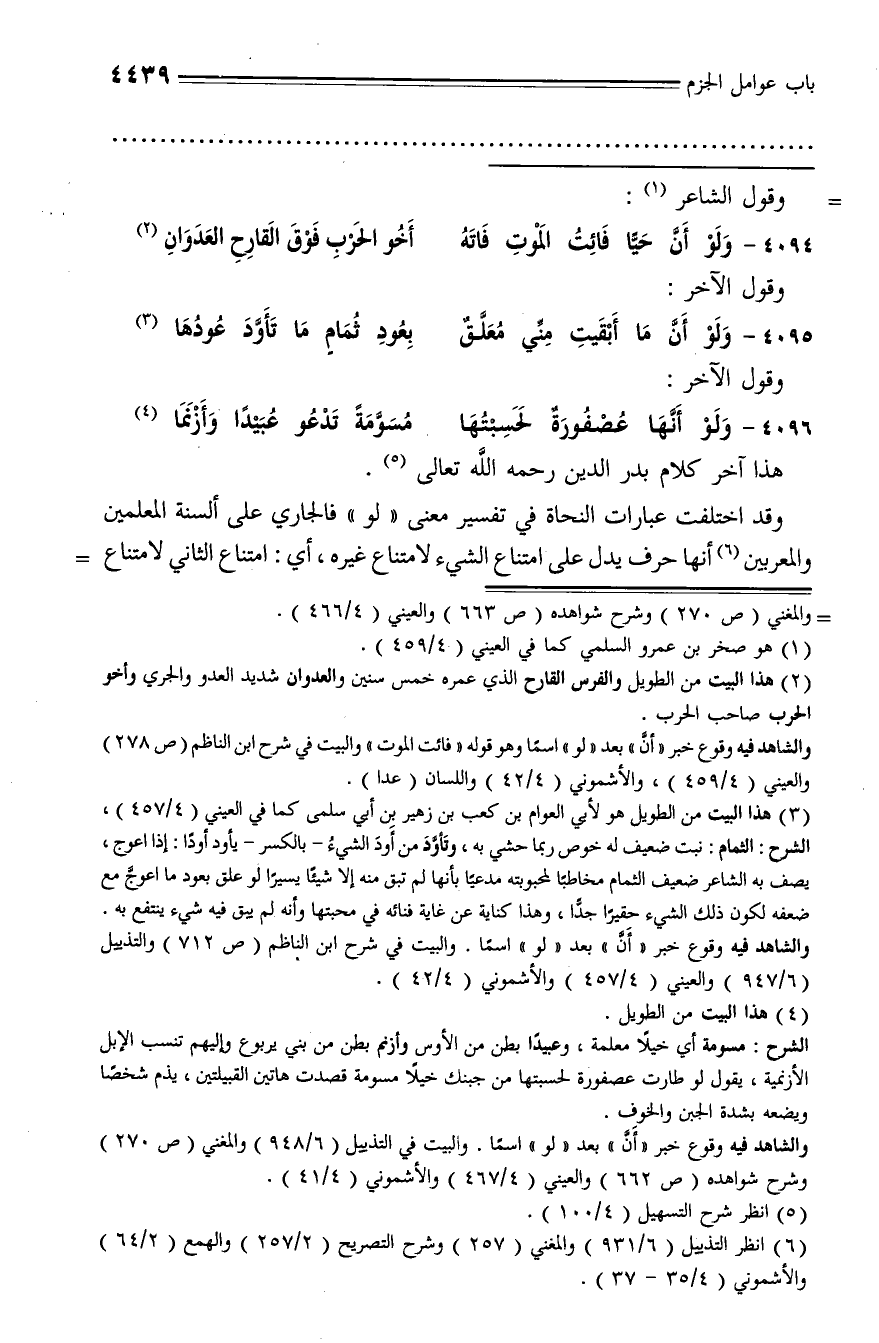 باب عوامل الجزم ٤٤٣٩
= وقول الشاعر (١) :
٤٠٩٤ - وَلَوْ أَنَّ حَيًّا فَائِتُ المَوْتِ فَاتَهُ أَخُو الحَرْبِ فَوْقَ القَارِحِ العَدَوَانِ (٢)
وقول الآخر :
٤٠٩٥ - وَلَوْ أَنَّ مَا أَبْقَيتِ مِنِّي مُعَلَّقٌ بِعُودِ ثُمَامٍ مَا تَأَوَّدَ عُودُهَا (٣)
وقول الآخر :
٤٠٩٦ - وَلَوْ أَنَّهَا عُصْفُورَةٌ لَحَسِبْتُهَا مُسَوَّمَةً تَدْعُو عُبَيْدًا وَأَزْنَمَا (٤)
هذا آخر كلام بدر الدين رحمه اللَّه تعالى (٥) .
وقد اختلفت عبارات النحاة في تفسير معنى « لو » فالجاري على ألسنة المعلمين
والمعربين (٦) أنها حرف يدل على امتناع الشيء لامتناع غيره ، أي : امتناع الثاني لامتناع =
= والمغني ( ص ٢٧٠ ) وشرح شواهده ( ص ٦٦٣ ) والعيني ( ٤٦٦/٤ ) .
(١) هو صخر بن عمرو السلمي كما في العيني ( ٤٥٩/٤ ) .
(٢) هذا البيت من الطويل والفرس القارح الذي عمره خمس سنين والعدوان شديد العدو والجري وأخو
الحرب صاحب الحرب .
والشاهد فيه وقوع خبر « أنَّ » بعد « لو » اسمًا وهو قوله « فائت الموت » والبيت في شرح ابن الناظم ( ص ٢٧٨ )
والعيني ( ٤٥٩/٤ ) ، والأشموني ( ٤٢/٤ ) واللسان ( عدا ) .
(٣) هذا البيت من الطويل هو لأبي العوام بن كعب بن زهير بن أبي سلمى كما في العيني ( ٤٥٧/٤ ) ،
الشرح : الثمام : نبت ضعيف له خوص ربما حشي به ، وتأوَّدَ من أَودَ الشيءُ - بالكسر - يأود أودًا : إذا اعوج ،
يصف به الشاعر ضعيف الثمام مخاطبًا لمحبوبته مدعيًا بأنها لم تبق منه إلا شيئًا يسيرًا لو علق بعود ما اعوجَّ مع
ضعفه لكون ذلك الشيء حقيرًا جدًّا ، وهذا كناية عن غاية فنائه في محبتها وأنه لم يبق فيه شيء ينتفع به .
والشاهد فيه وقوع خبر « أَنَّ » بعد « لو » اسمًا . والبيت في شرح ابن الناظم ( ص ٧١٢ ) والتذييل
( ٩٤٧/٦ ) والعيني ( ٤٥٧/٤ ) والأشموني ( ٤٢/٤ ) .
(٤) هذا البيت من الطويل .
الشرح : مسومة أي خيلًا معلمة ، وعبيدًا بطن من الأوس وأزنم بطن من بني يربوع وإليهم تنسب الإبل
الأزنمية ، يقول لو طارت عصفورة لحسبتها من جبنك خيلًا مسومة قصدت هاتين القبيلتين ، يذم شخصًا
ويضعه بشدة الجبن والخوف .
والشاهد فيه وقوع خبر « أَنَّ » بعد « لو » اسمًا . والبيت في التذييل ( ٩٤٨/٦ ) والمغني ( ص ٢٧٠ )
وشرح شواهده ( ص ٦٦٢ ) والعيني ( ٤٦٧/٤ ) والأشموني ( ٤١/٤ ) .
(٥) انظر شرح التسهيل ( ١٠٠/٤ ) .
(٦) انظر التذييل ( ٩٣١/٦ ) والمغني ( ٢٥٧ ) وشرح التصريح ( ٢٥٧/٢ ) والهمع ( ٦٤/٢ )
والأشموني ( ٣٥/٤ - ٣٧ ) .